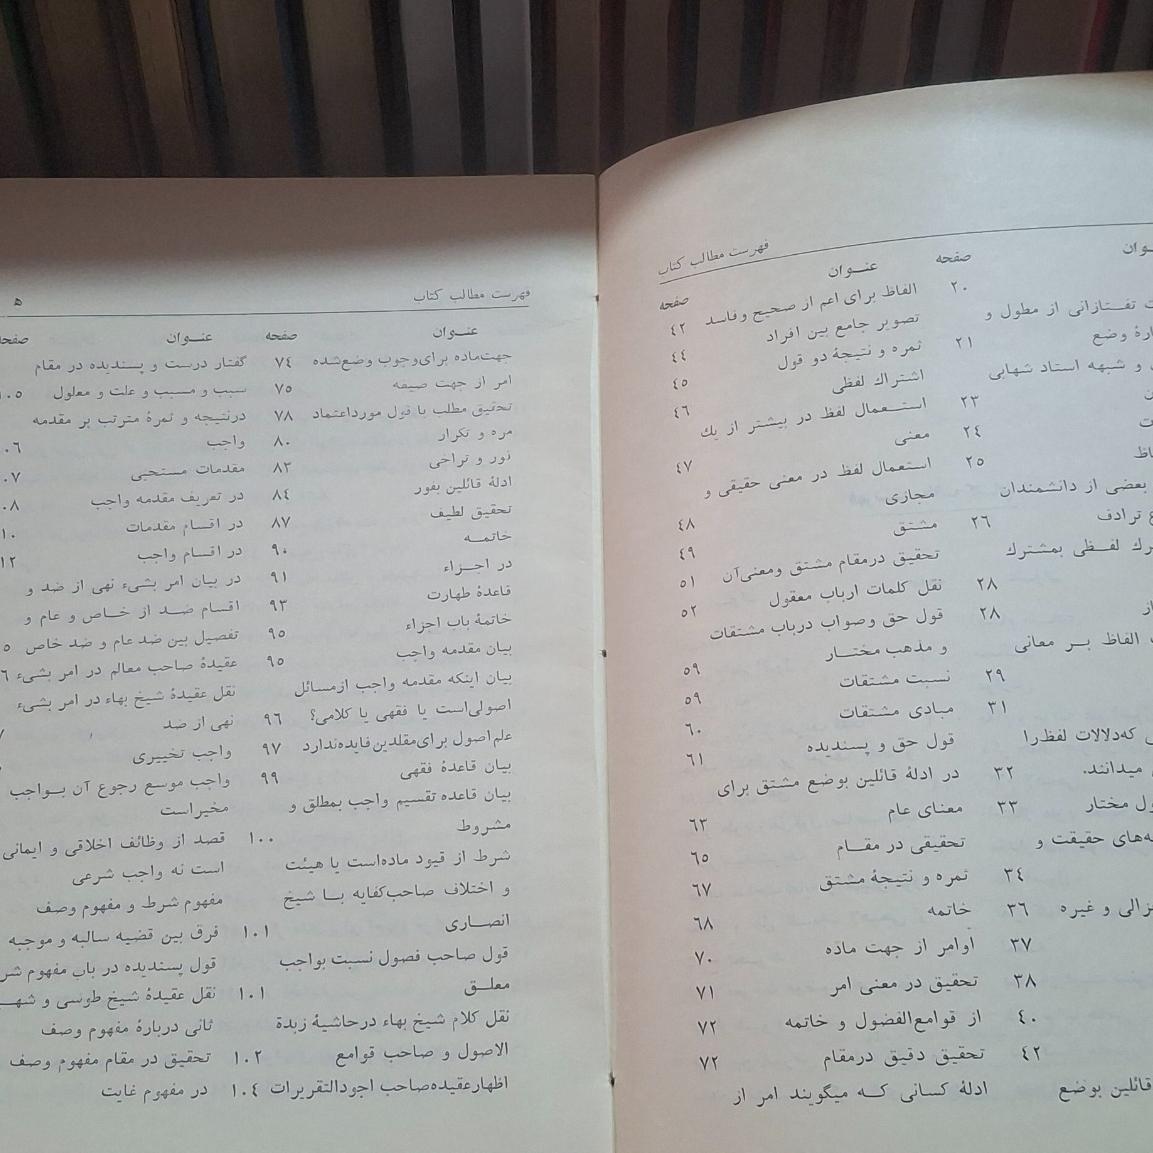 فهرست مطالب کتاب
ـوان
صفحه
۲۰
ت تفتازانی از مطول و
ارهٔ وضع ۲۱
و شبهه استاد شهابی
ن ۲۳
ت ۲۴
اظ ۲۵
بعضی از دانشمندان
ع ترادف ۲۶
رك لفــظی بمشترك
۲۸
از ۲۸
ت الفاظ بــر معانی
۲۹
۳۱
ی که‌دلالات لفظ‌را
میدانند. ۳۲
ول مختار ۳۳
ه‌های حقیقت و
۳۴
زالی و غیره ۳۶
۳۷
۳۸
۴۰
۴۲
قائلین بوضع
عنــوان صفحه
الفاظ برای اعم از صحیح وفاسد ۴۲
تصویر جامع بین افراد ۴۴
ثمره و نتیجهٔ دو قول ۴۵
اشتراك لفظی ۴۶
استــعمال لفظ در بیشتر از یك
معنی ۴۷
استعمال لفظ در معنی حقیقی و
مجازی ۴۸
مشتق ۴۹
تحقیق درمقام مشتق ومعنی‌آن ۵۱
نقل کلمات ارباب معقول ۵۲
قول حق وصواب درباب مشتقات
و مذهب مختــار ۵۹
نسبت مشتقات ۵۹
مبادی مشتقات ۶۰
قول حق و پسندیده ۶۱
در ادلهٔ قائلین بوضع مشتق برای
معنای عام ۶۳
تحقیقی در مقــام ۶۵
ثمره و نتیجهٔ مشتق ۶۷
خاتمه ۶۸
اوامر از جهت ماده ۷۰
تحقیق در معنی امر ۷۱
از قوامع‌الفضول و خاتمه ۷۲
تحقیق دقیق درمقام ۷۲
ادلهٔ کسانی کــه میگویند امر از
فهرست مطالب کتاب
ه
عنــوان صفحه
جهت‌ماده برای‌وجوب وضع‌شده ۷۴
امر از جهت صیغه ۷۵
تحقیق مطلب با قول مورداعتماد ۷۸
مره و تکرار ۸۰
فور و تراخی ۸۲
ادلهٔ قائلین بفور ۸۴
تحقیق لطیف ۸۷
خاتمــه ۹۰
در اجــزاء ۹۱
قاعدهٔ طهارت ۹۳
خاتمهٔ باب اجزاء ۹۵
بیان مقدمه واجب ۹۵
بیان اینکه مقدمه واجب ازمسائل
اصولی‌است یا فقهی یا کلامی؟ ۹۶
علم‌اصول برای‌مقلدین‌فایده‌ندارد ۹۷
بیان قاعدهٔ فقهی ۹۹
بیان قاعده تقسیم واجب بمطلق و
مشروط ۱۰۰
شرط از قیود ماده‌است یا هیئت
و اختلاف صاحب‌کفایه بــا شیخ
انصــاری ۱۰۱
قول صاحب فصول نسبت بواجب
معلــق ۱۰۱
نقل کلام شیخ بهاء درحاشیهٔ زبدة
الاصول و صاحب قوامع ۱۰۲
اظهارعقیده‌صاحب اجودالتقریرات ۱۰۴
عنــوان صفحه
گفتار درست و پسندیده در مقام
سبب و مسبب و علت و معلول ۱۰۵
درنتیجه و ثمرهٔ مترتب بر مقدمه
واجب ۰۶
مقدمات مستحبی ۰۷
در تعریف مقدمه واجب ۰۸
در اقسام مقدمات ۱۰
در اقسام واجب ۱۲
در بیان امر بشیء نهی از ضد و
اقسام ضــد از خــاص و عام و
تفصیل بین ضدعام و ضد خاص ۵
عقیدهٔ صاحب معالم در امر بشیء ۶
نقل عقیدهٔ شیخ بهاء در امر بشیء
نهی از ضد ۷
واجب تخییری
واجب موسع رجوع آن بــواجب
مخیراست
قصد از وظائف اخلاقی و ایمانی
است نه واجب شرعی
مفهوم شرط و مفهوم وصف
فرق بین قضیه سالبه و موجبه
قول پسندیده در باب مفهوم شر
نقل عقیدهٔ شیخ طوسی و شهــ
ثانی دربارهٔ مفهوم وصف
تحقیق در مقام مفهوم وصف
در مفهوم غایت